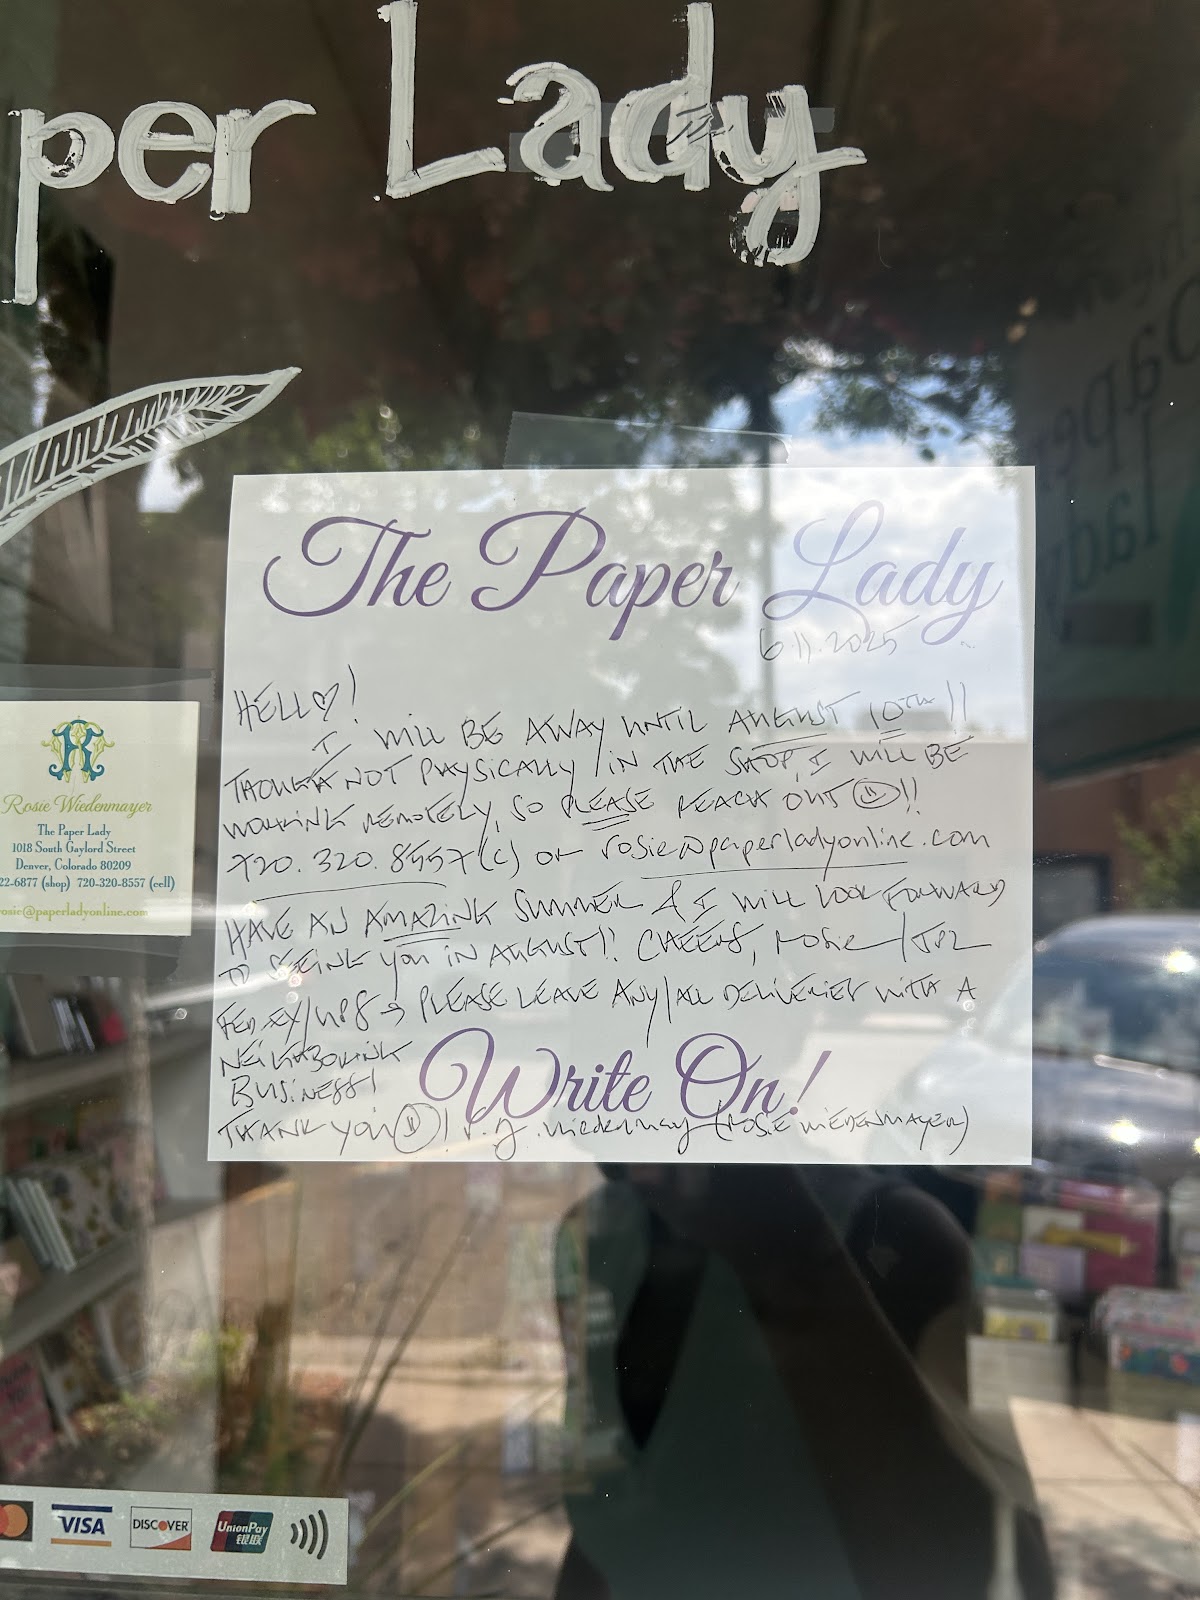 per Lady
The Paper Lady
6.11.2025
HELLO!
I WILL BE AWAY UNTIL AUGUST 10TH!!
THOUGH NOT PHYSICALLY IN THE SHOP, I WILL BE
WORKING REMOTELY, SO PLEASE REACH OUT !!
720.320.8557(c) or rosie@paperladyonline.com
HAVE AN AMAZING SUMMER & I WILL LOOK FORWARD
TO SEEING you IN AUGUST!! CHEERS, rosie/TPL
FED EX/UPS → PLEASE LEAVE ANY/ALL DELIVERIES WITH A
NEIGHBORING
BUSINESS!
Write On!
THANK YOU ! r.g.wiedenmayer (ROSIE WIEDENMAYER)
R
Rosie Wiedenmayer
The Paper Lady
1018 South Gaylord Street
Denver, Colorado 80209
22-6877 (shop) 720-320-8557 (cell)
rosie@paperladyonline.com
VISA DISCOVER UnionPay
银联
Paper
lady